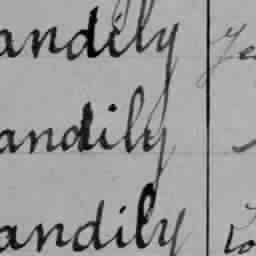 andily
andily
andily